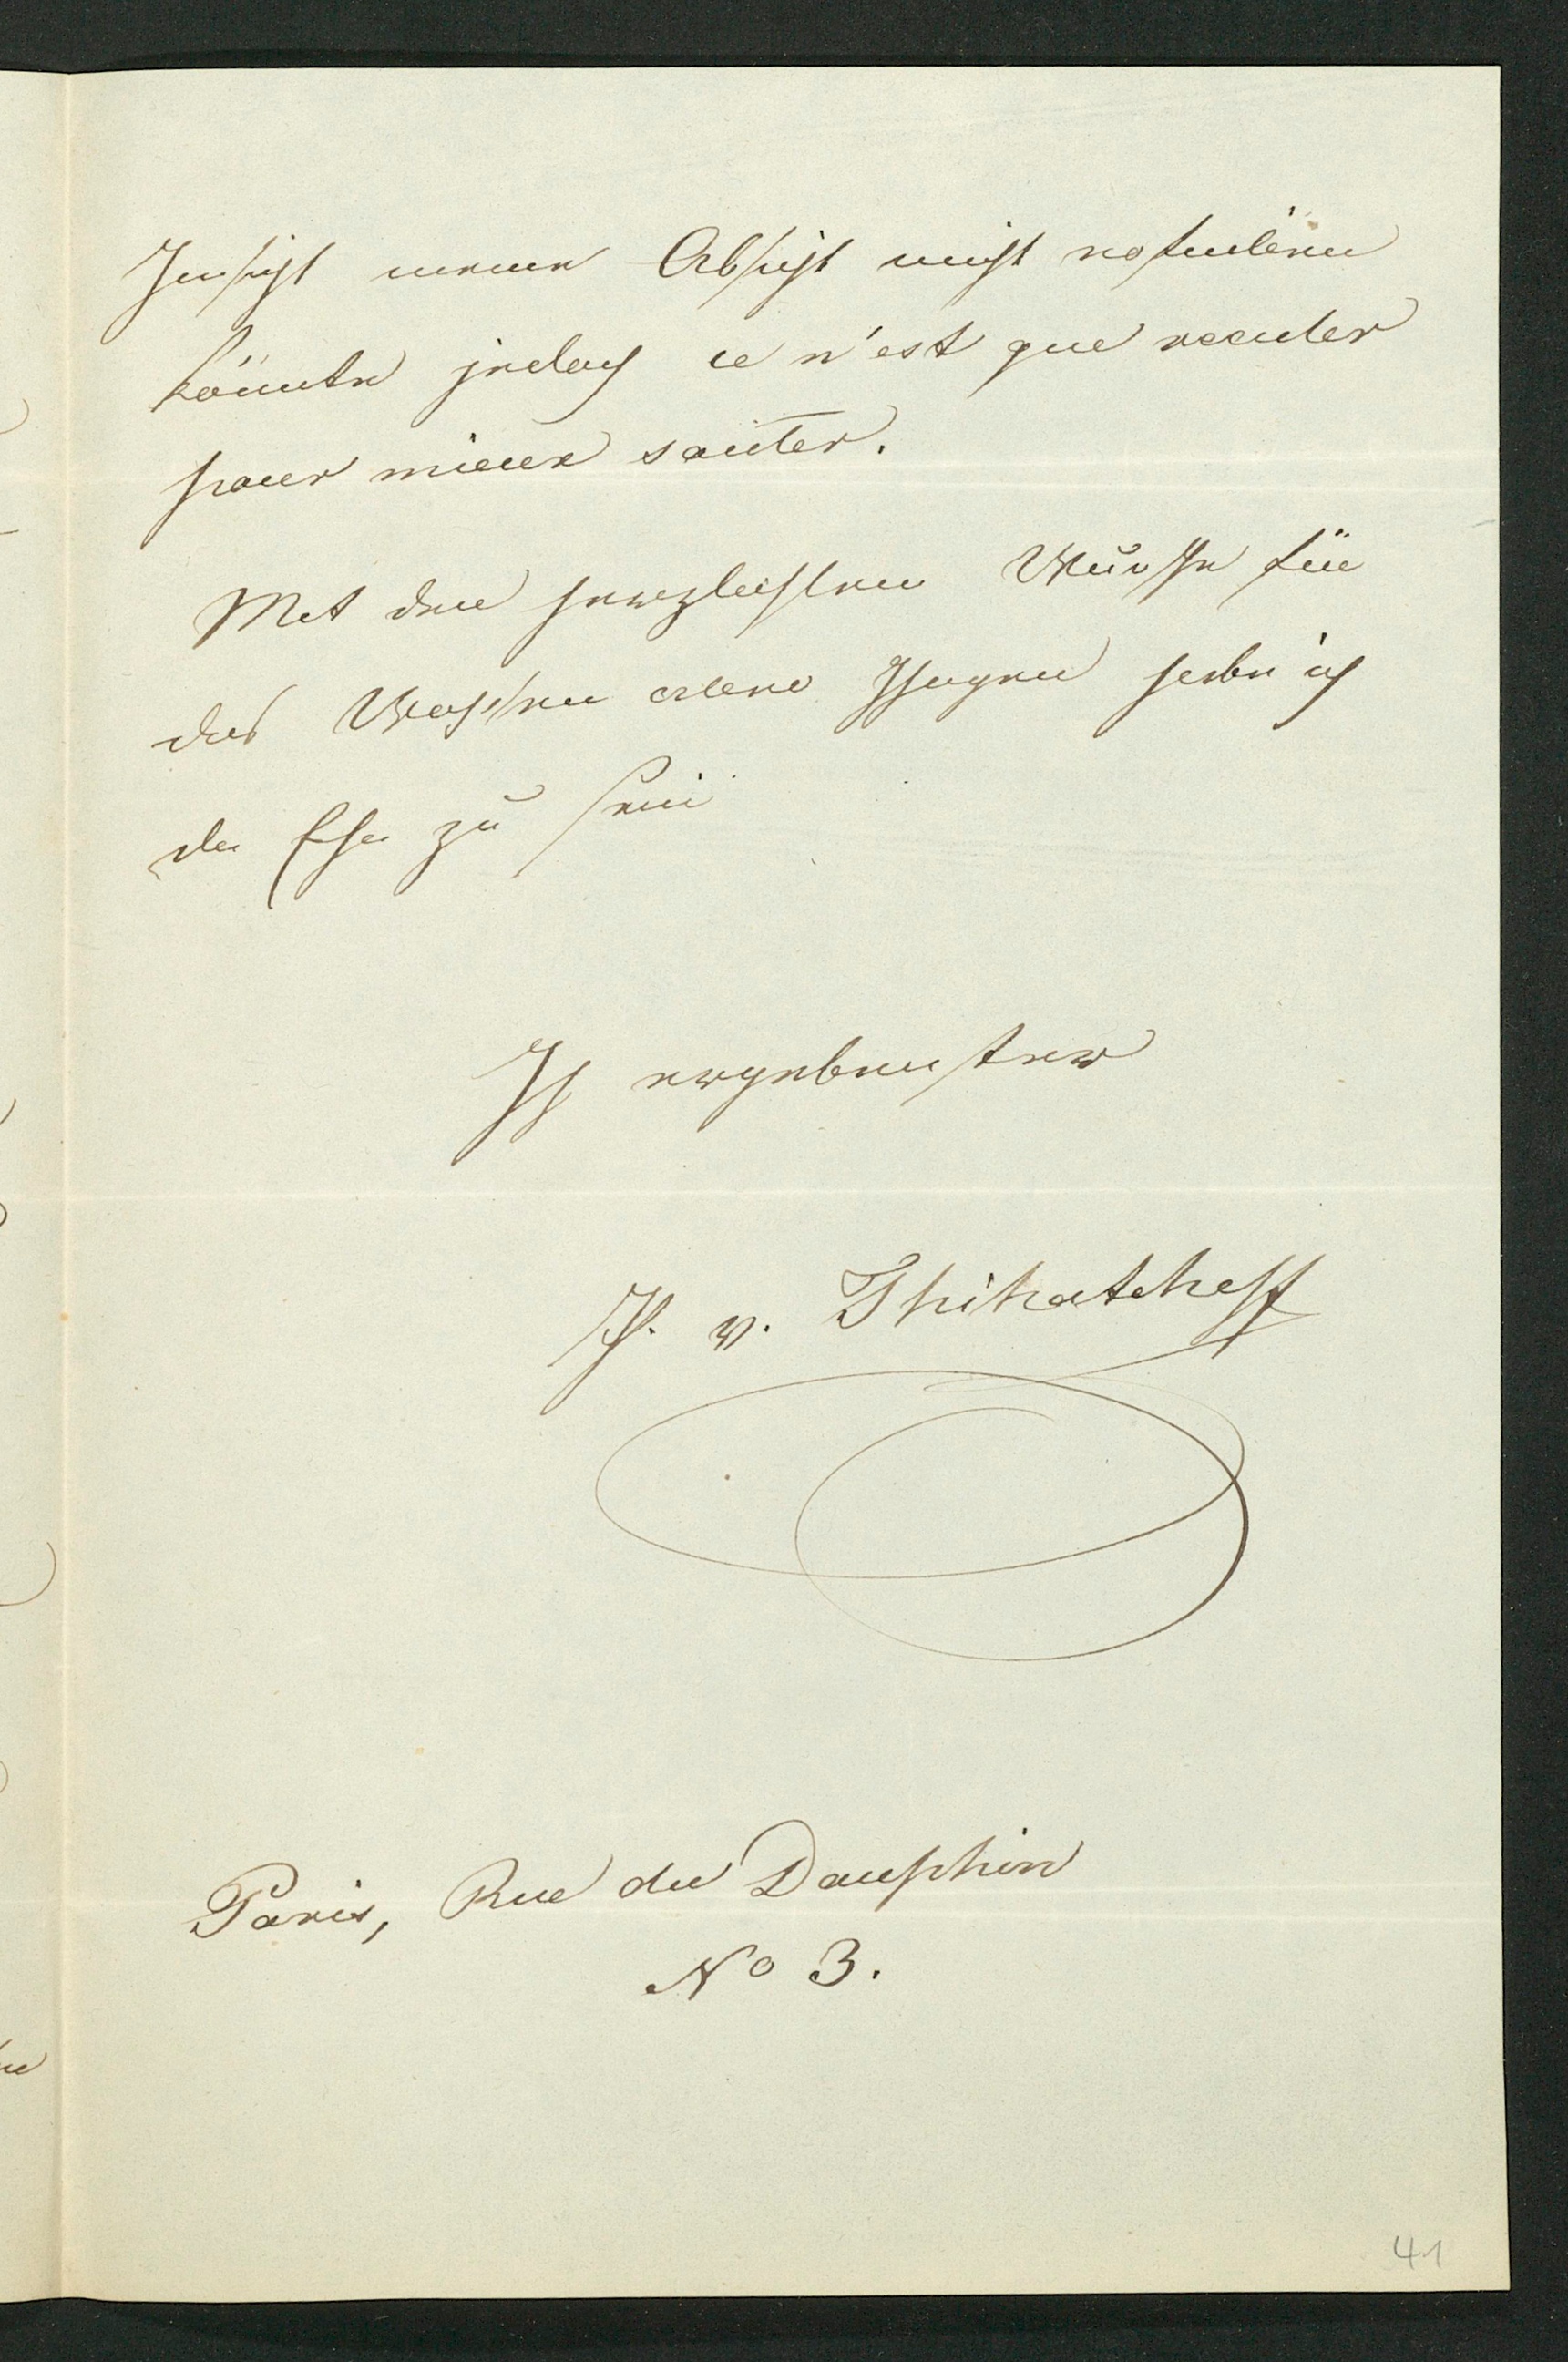 Hinsicht meine Absicht nicht erfüllen
könnte jedoch ce n'est que reculer
pour mieux sauter.
Mit den herzlichsten Wünsche für
das Wohl habe ich
die Ehre zu sein
Ihr ergebenster
P. v. Tchihatcheff
Paris, Rue du Dauphin
No 3.
41